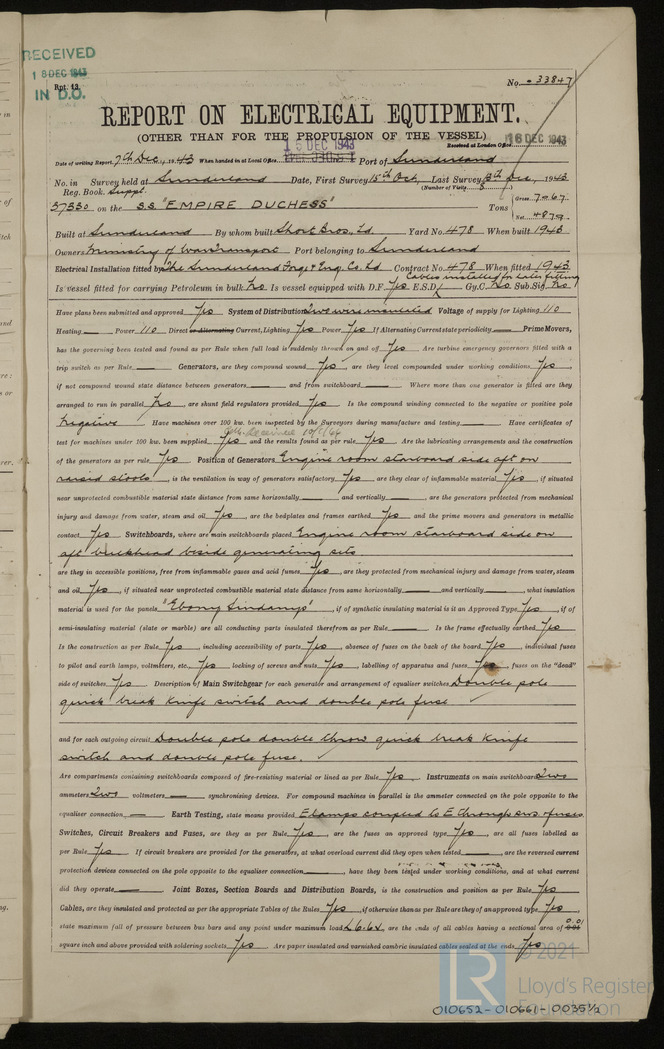 RECEIVED
18 DEC 1943
Rpt. 13.
IN D.O.
No. 33847
REPORT ON ELECTRICAL EQUIPMENT.
(OTHER THAN FOR THE PROPULSION OF THE VESSEL)
15 DEC 1943
16 DEC 1943
Received at London Office
Date of writing Report 7th Dec. 1943 When handed in at Local Office Port of Sunderland
No. in Survey held at Sunderland Date, First Survey 15th Oct. Last Survey 1943
Reg. Book. Suppl. (Number of Visits 8)
37330 on the S.S. "EMPIRE DUCHESS" Tons Gross 7067
Net 4879
Built at Sunderland By whom built Short Bros., Ld. Yard No. 478 When built 1943
Owners Ministry of War Transport Port belonging to Sunderland
Electrical Installation fitted by The Sunderland Forge & Eng. Co. Ld Contract No. 478 When fitted 1943
Cables installed for later fitting
Is vessel fitted for carrying Petroleum in bulk No Is vessel equipped with D.F. Yes E.S.D. Gy.C. No Sub.Sig. No
Have plans been submitted and approved Yes System of Distribution Two wire insulated Voltage of supply for Lighting 110
Heating — Power 110 Direct or Alternating Current, Lighting Yes Power Yes If Alternating Current state periodicity — Prime Movers,
has the governing been tested and found as per Rule when full load is suddenly thrown on and off Yes Are turbine emergency governors fitted with a
trip switch as per Rule — Generators, are they compound wound Yes, are they level compounded under working conditions Yes,
if not compound wound state distance between generators — and from switchboard — Where more than one generator is fitted are they
arranged to run in parallel No, are shunt field regulators provided Yes Is the compound winding connected to the negative or positive pole
Negative Have machines over 100 kw. been inspected by the Surveyors during manufacture and testing — Have certificates of
test for machines under 100 kw. been supplied Yes and the results found as per rule Yes Are the lubricating arrangements and the construction
of the generators as per rule Yes Position of Generators Engine room starboard side aft on
raised stools, is the ventilation in way of generators satisfactory Yes, are they clear of inflammable material Yes, if situated
near unprotected combustible material state distance from same horizontally — and vertically —, are the generators protected from mechanical
injury and damage from water, steam and oil Yes, are the bedplates and frames earthed Yes and the prime movers and generators in metallic
contact Yes Switchboards, where are main switchboards placed Engine room starboard side on
aft bulkhead beside generating sets
are they in accessible positions, free from inflammable gases and acid fumes Yes, are they protected from mechanical injury and damage from water, steam
and oil Yes, if situated near unprotected combustible material state distance from same horizontally — and vertically —, what insulation
material is used for the panels "Ebony Sindanyo", if of synthetic insulating material is it an Approved Type Yes, if of
semi-insulating material (slate or marble) are all conducting parts insulated therefrom as per Rule — Is the frame effectually earthed Yes
Is the construction as per Rule Yes, including accessibility of parts Yes, absence of fuses on the back of the board Yes, individual fuses
to pilot and earth lamps, voltmeters, etc. Yes, locking of screws and nuts Yes, labelling of apparatus and fuses Yes, fuses on the "dead"
side of switches Yes Description of Main Switchgear for each generator and arrangement of equaliser switches Double pole
quick break knife switch and double pole fuse
and for each outgoing circuit Double pole double throw quick break knife
switch and double pole fuse.
Are compartments containing switchboards composed of fire-resisting material or lined as per Rule Yes Instruments on main switchboard Two
ammeters Two voltmeters — synchronising devices. For compound machines in parallel is the ammeter connected on the pole opposite to the
equaliser connection — Earth Testing, state means provided E lamps coupled to E through sws & fuses
Switches, Circuit Breakers and Fuses, are they as per Rule Yes, are the fuses an approved type Yes, are all fuses labelled as
per Rule Yes If circuit breakers are provided for the generators, at what overload current did they open when tested —, are the reversed current
protection devices connected on the pole opposite to the equaliser connection —, have they been tested under working conditions, and at what current
did they operate — Joint Boxes, Section Boards and Distribution Boards, is the construction and position as per Rule Yes
Cables, are they insulated and protected as per the appropriate Tables of the Rules Yes, if otherwise than as per Rule are they of an approved type Yes,
state maximum fall of pressure between bus bars and any point under maximum load 6.6v, are the ends of all cables having a sectional area of 0.01
square inch and above provided with soldering sockets Yes Are paper insulated and varnished cambric insulated cables sealed at the ends Yes
© 2021
LR
Lloyd's Register
Foundation
010652-010661-0035½